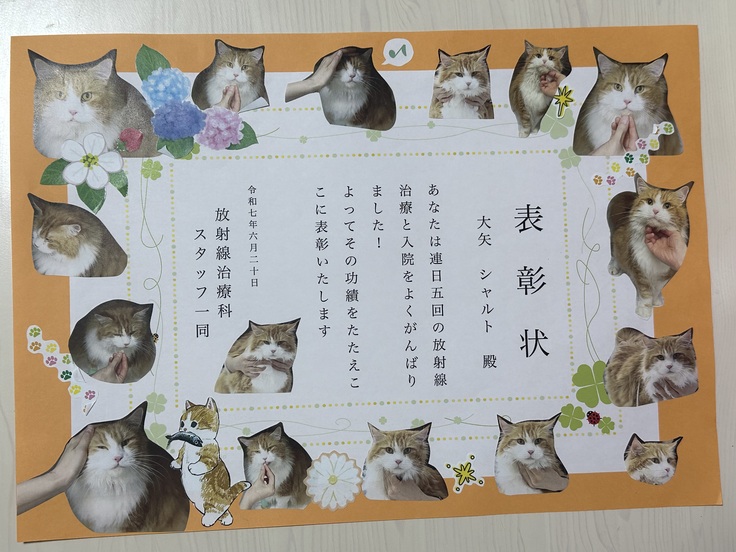 表彰状
大矢 シャルト 殿
あなたは連日五回の放射線
治療と入院をよくがんばり
ました！
よってその功績をたたえこ
こに表彰いたします
令和七年六月二十日
放射線治療科
スタッフ一同